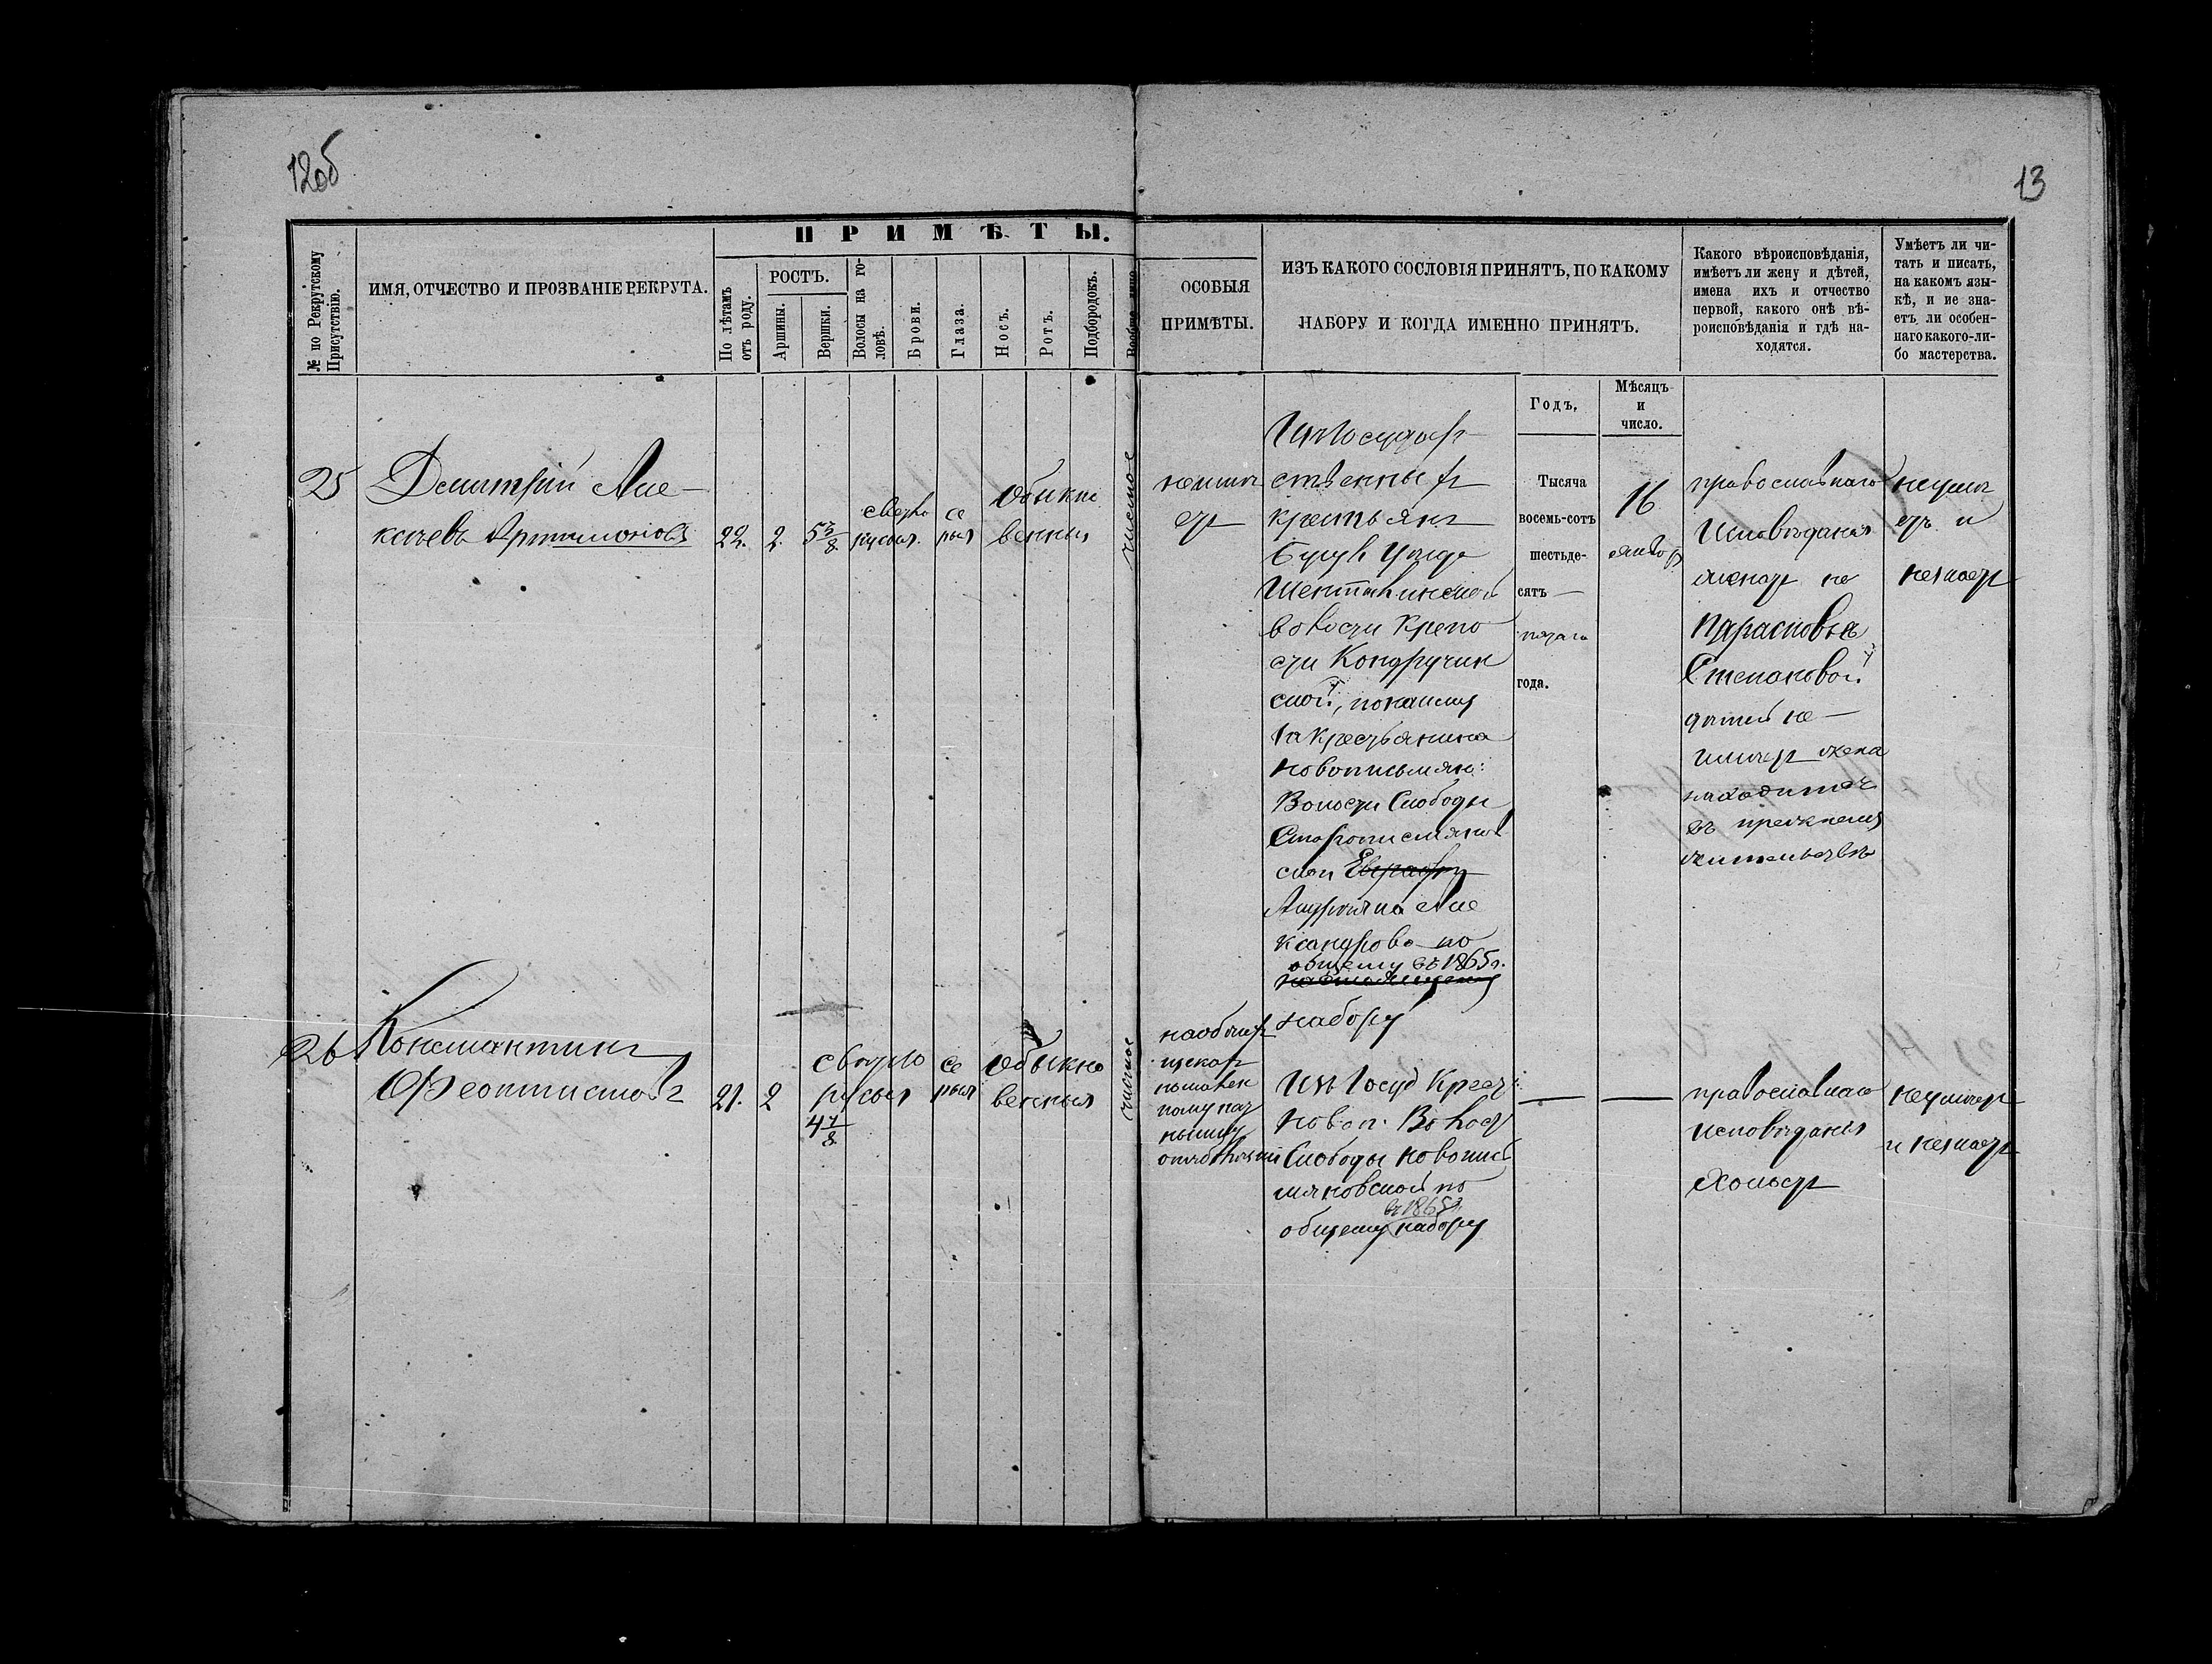 12об
13
ПРИМѢТЫ.
№ по Рекрутскому Присутствію.
ИМЯ, ОТЧЕСТВО И ПРОЗВАНІЕ РЕКРУТА.
По лѣтамъ отъ роду.
РОСТЪ.
Аршины.
Вершки.
Волосы на головѣ.
Брови.
Глаза.
Носъ.
Ротъ.
Подбородокъ.
Вообще лицо
ОСОБЫЯ
ПРИМѢТЫ.
ИЗЪ КАКОГО СОСЛОВІЯ ПРИНЯТЪ, ПО КАКОМУ
НАБОРУ И КОГДА ИМЕННО ПРИНЯТЪ.
Годъ,
Мѣсяцъ
и
число.
Какого вѣроисповѣданія,
имѣетъ ли жену и дѣтей,
имена ихъ и отчество
первой, какого онѣ вѣ-
роисповѣданія и гдѣ на-
ходятся.
Умѣетъ ли чи-
тать и писать,
на какомъ язы-
кѣ, и не зна-
етъ ли особен-
наго какого-ли-
бо мастерства.
25
Дмитрій Але-
ксѣевъ Артамоновъ
22. 2. 5 3/8
свѣтло
русыя.
се
рыя
обыкно
венныя
чистое
неимѣ
етъ
Изъ Государ-
ственныхъ
крестьянъ
Уѣзда
волости Крепо
сти Кондручин
ской, по найму
за крестьянина
новописьмян:
Волости Слободы
Старописмянов
ской Евграфу
Андрояна Але
ксандрова по
общему въ 1865г.
набору
Тысяча
восемь-сотъ
шестьде-
сятъ —
пятаго
года.
16
января
православнаго
Исповѣданія
женатъ на
Парасковьѣ
Степановой
дѣтей не-
имѣетъ жена
находится
въ прежнемъ
жительствѣ
неумѣ
етъ и
незнаетъ
26
Константинъ
Феоктистовъ
21. 2
4 7/8
свѣтло
русыя
се
рыя
обыкно
венныя
чистое
на обѣихъ
щекахъ
по малень
кому
Изъ Госуд Крест:
Новоп. Волост
Слободы Новопись
мяновской по
въ 1865г.
общему набору
— —
православнаго
исповѣданія
Холостъ
неумѣетъ
и незнаетъ